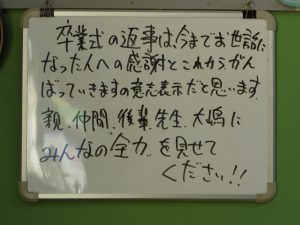 卒業式の返事は、今までお世話に
なった人への感謝とこれからがん
ばっていきますの意を表示だと思います.
親、仲間、後輩、先生、大嶋に
みんなの"全力"を見せて
ください!!